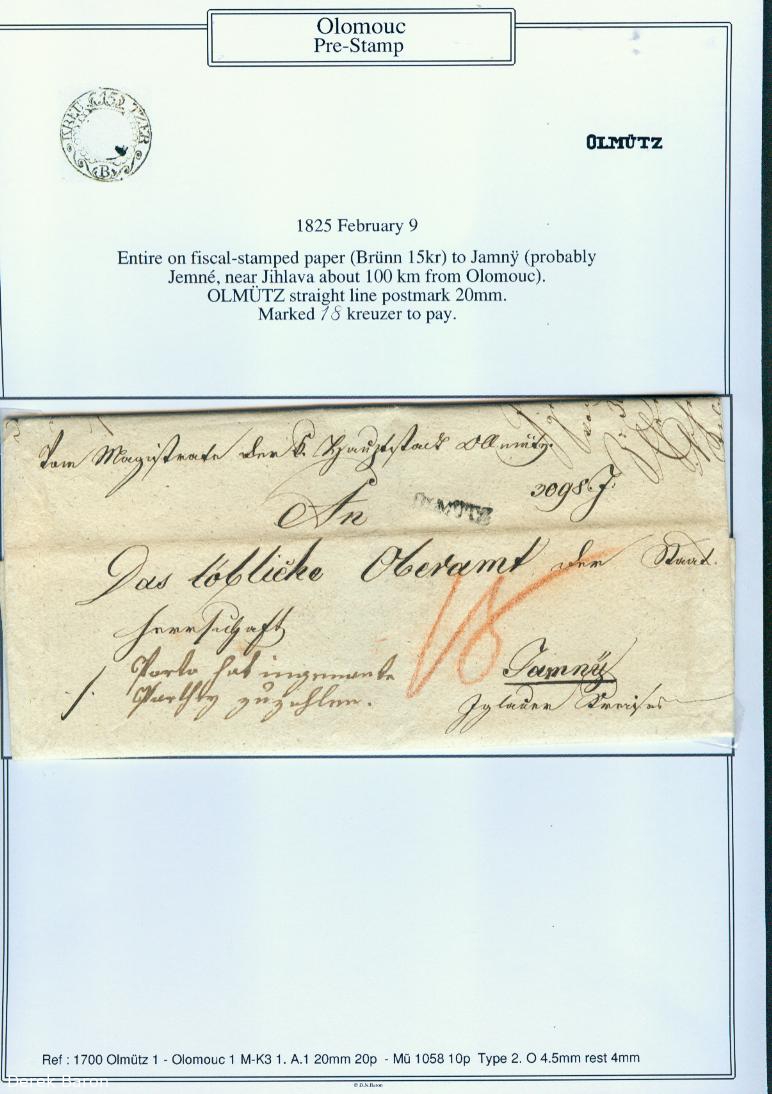 Olomouc
Pre-Stamp
KREU 15 TZER
B
OLMÜTZ
1825 February 9
Entire on fiscal-stamped paper (Brünn 15kr) to Jamnÿ (probably
Jemné, near Jihlava about 100 km from Olomouc).
OLMÜTZ straight line postmark 20mm.
Marked 18 kreuzer to pay.
Vom Magistrate der K. Hauptstadt Ollmütz.
3098 J.
An
OLMÜTZ
Das löbliche Oberamt der Staat.
Herrschaft
18
Porto hat ingenannte
Parthey zuzahlen.
Jamnÿ
Iglauer Kreises
Ref : 1700 Olmütz 1 - Olomouc 1 M-K3 1. A.1 20mm 20p - Mü 1058 10p Type 2. O 4.5mm rest 4mm
Derek Baron
© D.N.Baron